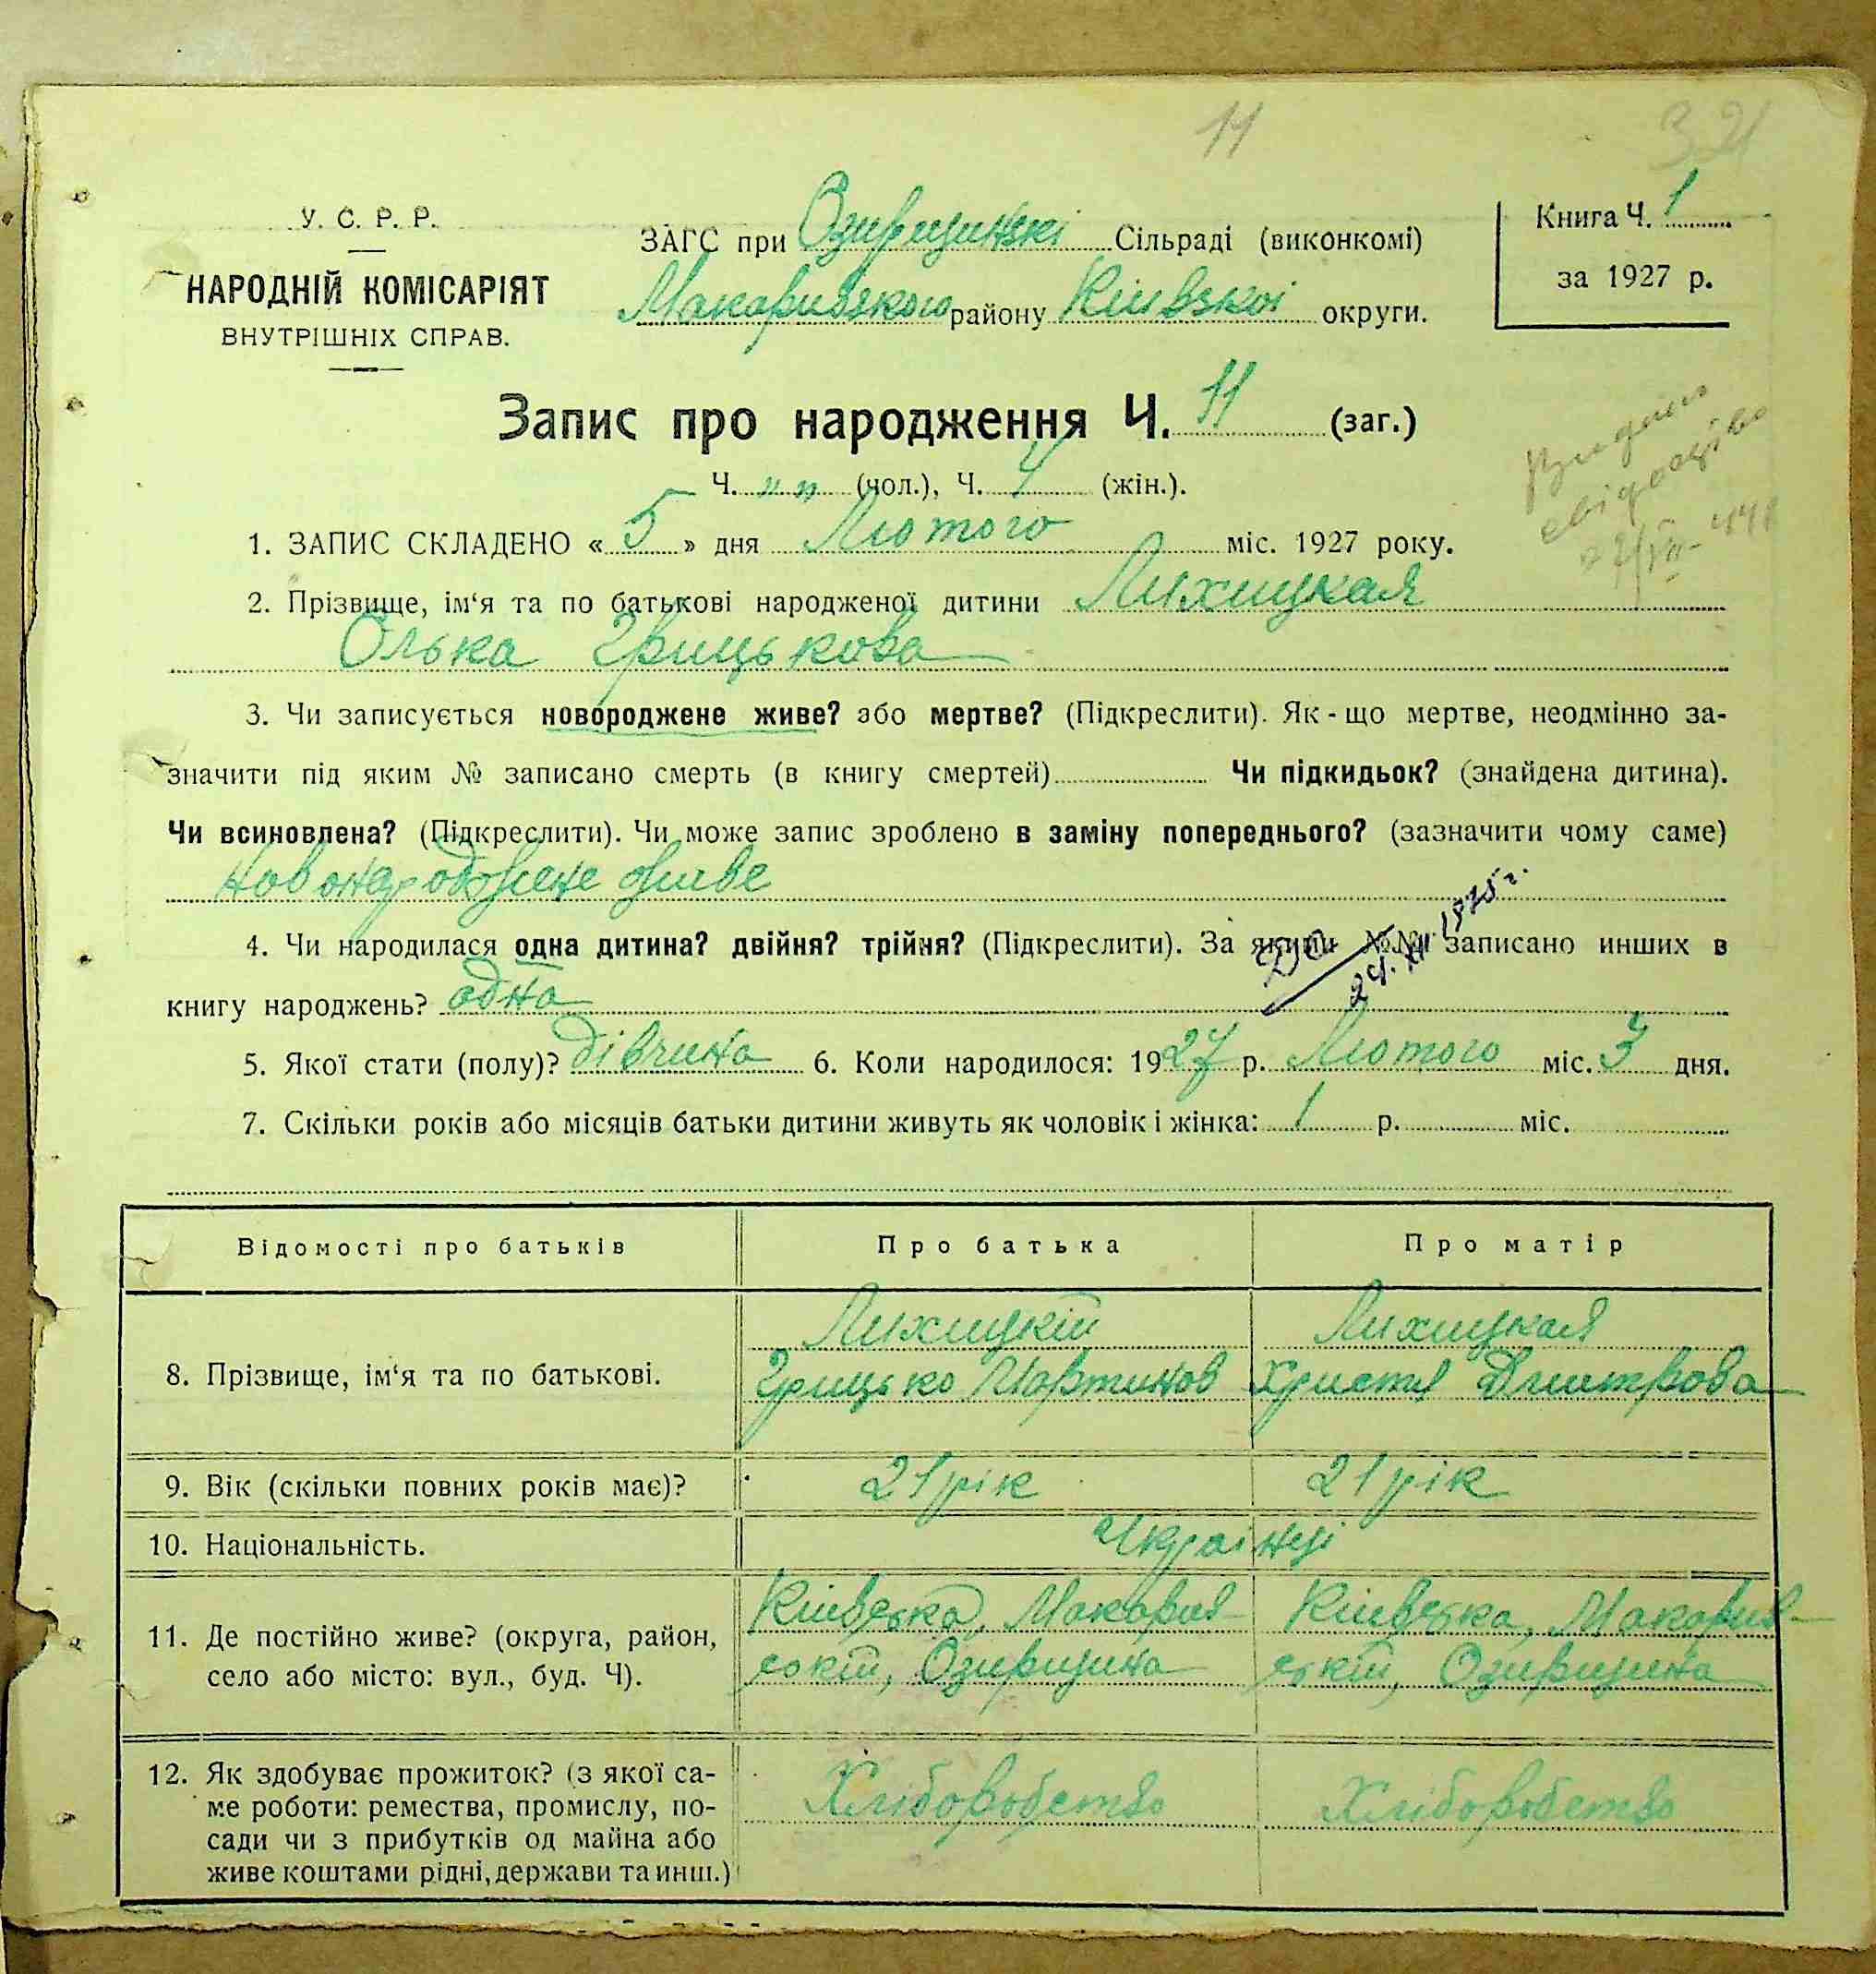 11
321
У. С. Р. Р.
НАРОДНІЙ КОМІСАРІЯТ
ВНУТРІШНІХ СПРАВ.
ЗАГС при Озирщинські Сільраді (виконкомі)
Макаривського району Київскої округи.
Книга Ч. 1
за 1927 р.
Запис про народження Ч. 11 (заг.)
Ч. „ „ (чол.), Ч. 4 (жін.).
Видано
свідоцтво
1. ЗАПИС СКЛАДЕНО « 5 » дня Лютого міс. 1927 року.
2. Прізвище, ім‘я та по батькові народженої дитини Лихицкая
Олька Грицькова
3. Чи записується новороджене живе? або мертве? (Підкреслити). Як - що мертве, неодмінно за-
значити під яким № записано смерть (в книгу смертей) Чи підкидьок? (знайдена дитина).
Чи всиновлена? (Підкреслити). Чи може запис зроблено в заміну попереднього? (зазначити чому саме)
новонароджене живе
4. Чи народилася одна дитина? двійня? трійня? (Підкреслити). За якими №№ записано инших в
24.XII 1975 г.
книгу народжень? одна
5. Якої стати (полу)? дівчина 6. Коли народилося: 1927 р. Лютого міс. 3 дня.
7. Скільки років або місяців батьки дитини живуть як чоловік і жінка: 1 р. міс.
Відомості про батьків Про батька Про матір
8. Прізвище, ім‘я та по батькові.
Лихицкій
Грицько Мартинов
Лихицкая
Христя Дмитрова
9. Вік (скільки повних років має)? 21 рік 21 рік
10. Національність. Українці
11. Де постійно живе? (округа, район,
село або місто: вул., буд. Ч).
Київська, Макарив-
ській, Озирщина
Київська, Макарив-
ській, Озирщина
12. Як здобуває прожиток? (з якої са-
ме роботи: ремества, промислу, по-
сади чи з прибутків од майна або
живе коштами рідні, держави та инш.)
Хліборобство
Хліборобство